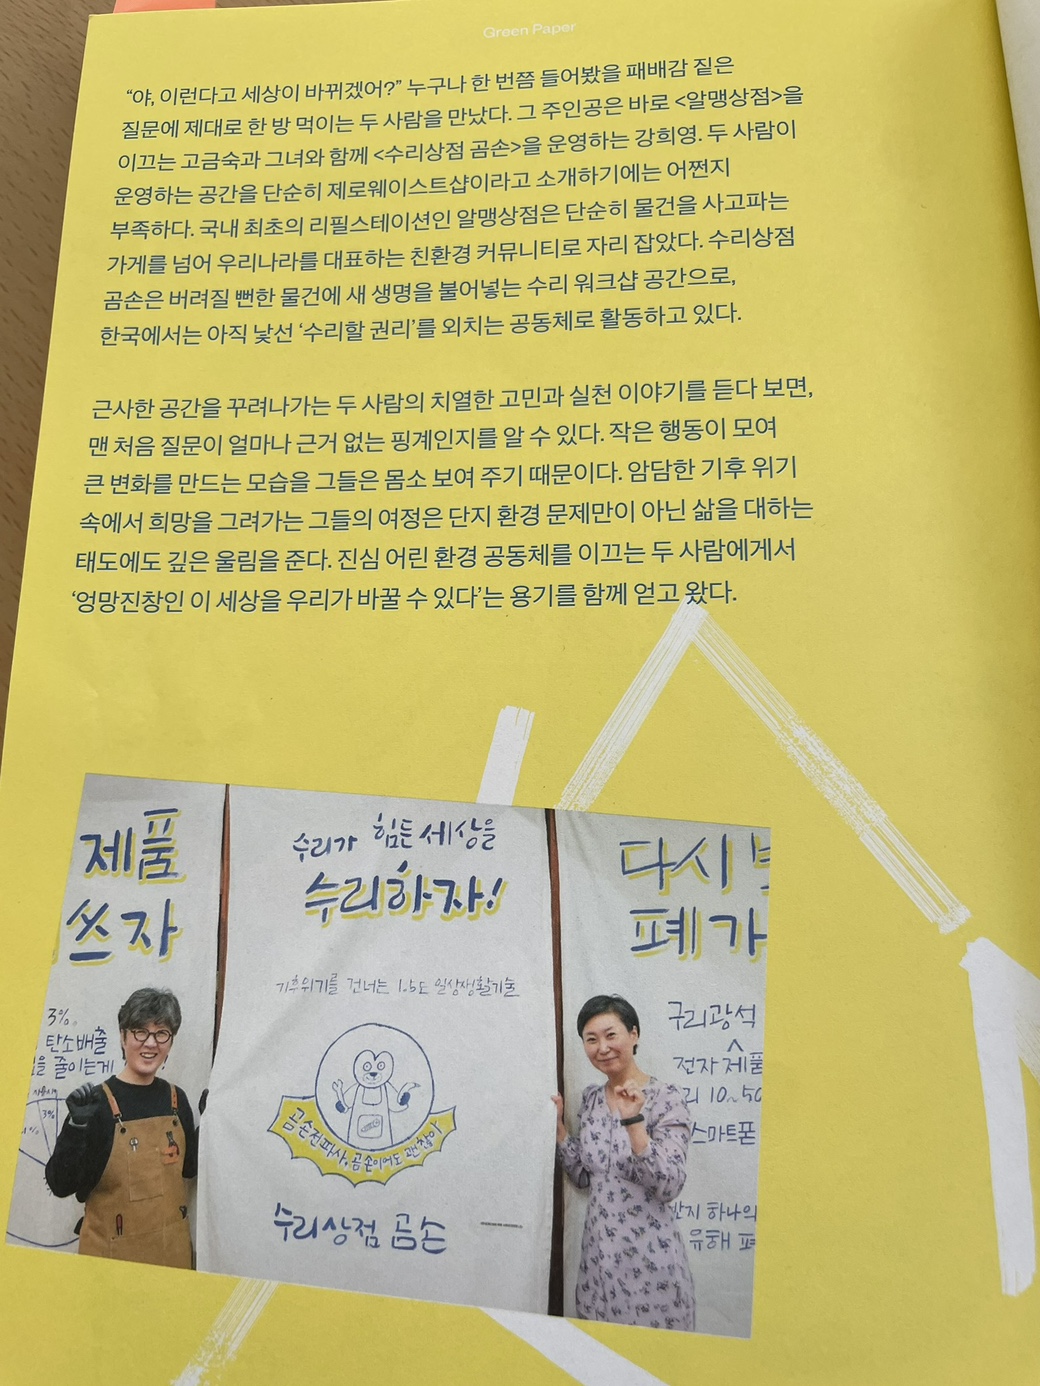 Green Paper
“야, 이런다고 세상이 바뀌겠어?” 누구나 한 번쯤 들어봤을 패배감 짙은
질문에 제대로 한 방 먹이는 두 사람을 만났다. 그 주인공은 바로 <알맹상점>을
이끄는 고금숙과 그녀와 함께 <수리상점 곰손>을 운영하는 강희영. 두 사람이
운영하는 공간을 단순히 제로웨이스트샵이라고 소개하기에는 어쩐지
부족하다. 국내 최초의 리필스테이션인 알맹상점은 단순히 물건을 사고파는
가게를 넘어 우리나라를 대표하는 친환경 커뮤니티로 자리 잡았다. 수리상점
곰손은 버려질 뻔한 물건에 새 생명을 불어넣는 수리 워크샵 공간으로,
한국에서는 아직 낯선 ‘수리할 권리’를 외치는 공동체로 활동하고 있다.
근사한 공간을 꾸려나가는 두 사람의 치열한 고민과 실천 이야기를 듣다 보면,
맨 처음 질문이 얼마나 근거 없는 핑계인지를 알 수 있다. 작은 행동이 모여
큰 변화를 만드는 모습을 그들은 몸소 보여 주기 때문이다. 암담한 기후 위기
속에서 희망을 그려가는 그들의 여정은 단지 환경 문제만이 아닌 삶을 대하는
태도에도 깊은 울림을 준다. 진심 어린 환경 공동체를 이끄는 두 사람에게서
‘엉망진창인 이 세상을 우리가 바꿀 수 있다’는 용기를 함께 얻고 왔다.
제품
쓰자
3%
탄소배출
을 줄이는게
3%
수리가 힘든 세상을
수리하자!
기후위기를 건너는 1.5도 일상생활기술
곰손전파사, 곰손이어도 괜찮아
수리상점 곰손
다시
폐가
구리광석
전자제품
리 10~50
스마트폰
반지 하나의
유해 폐